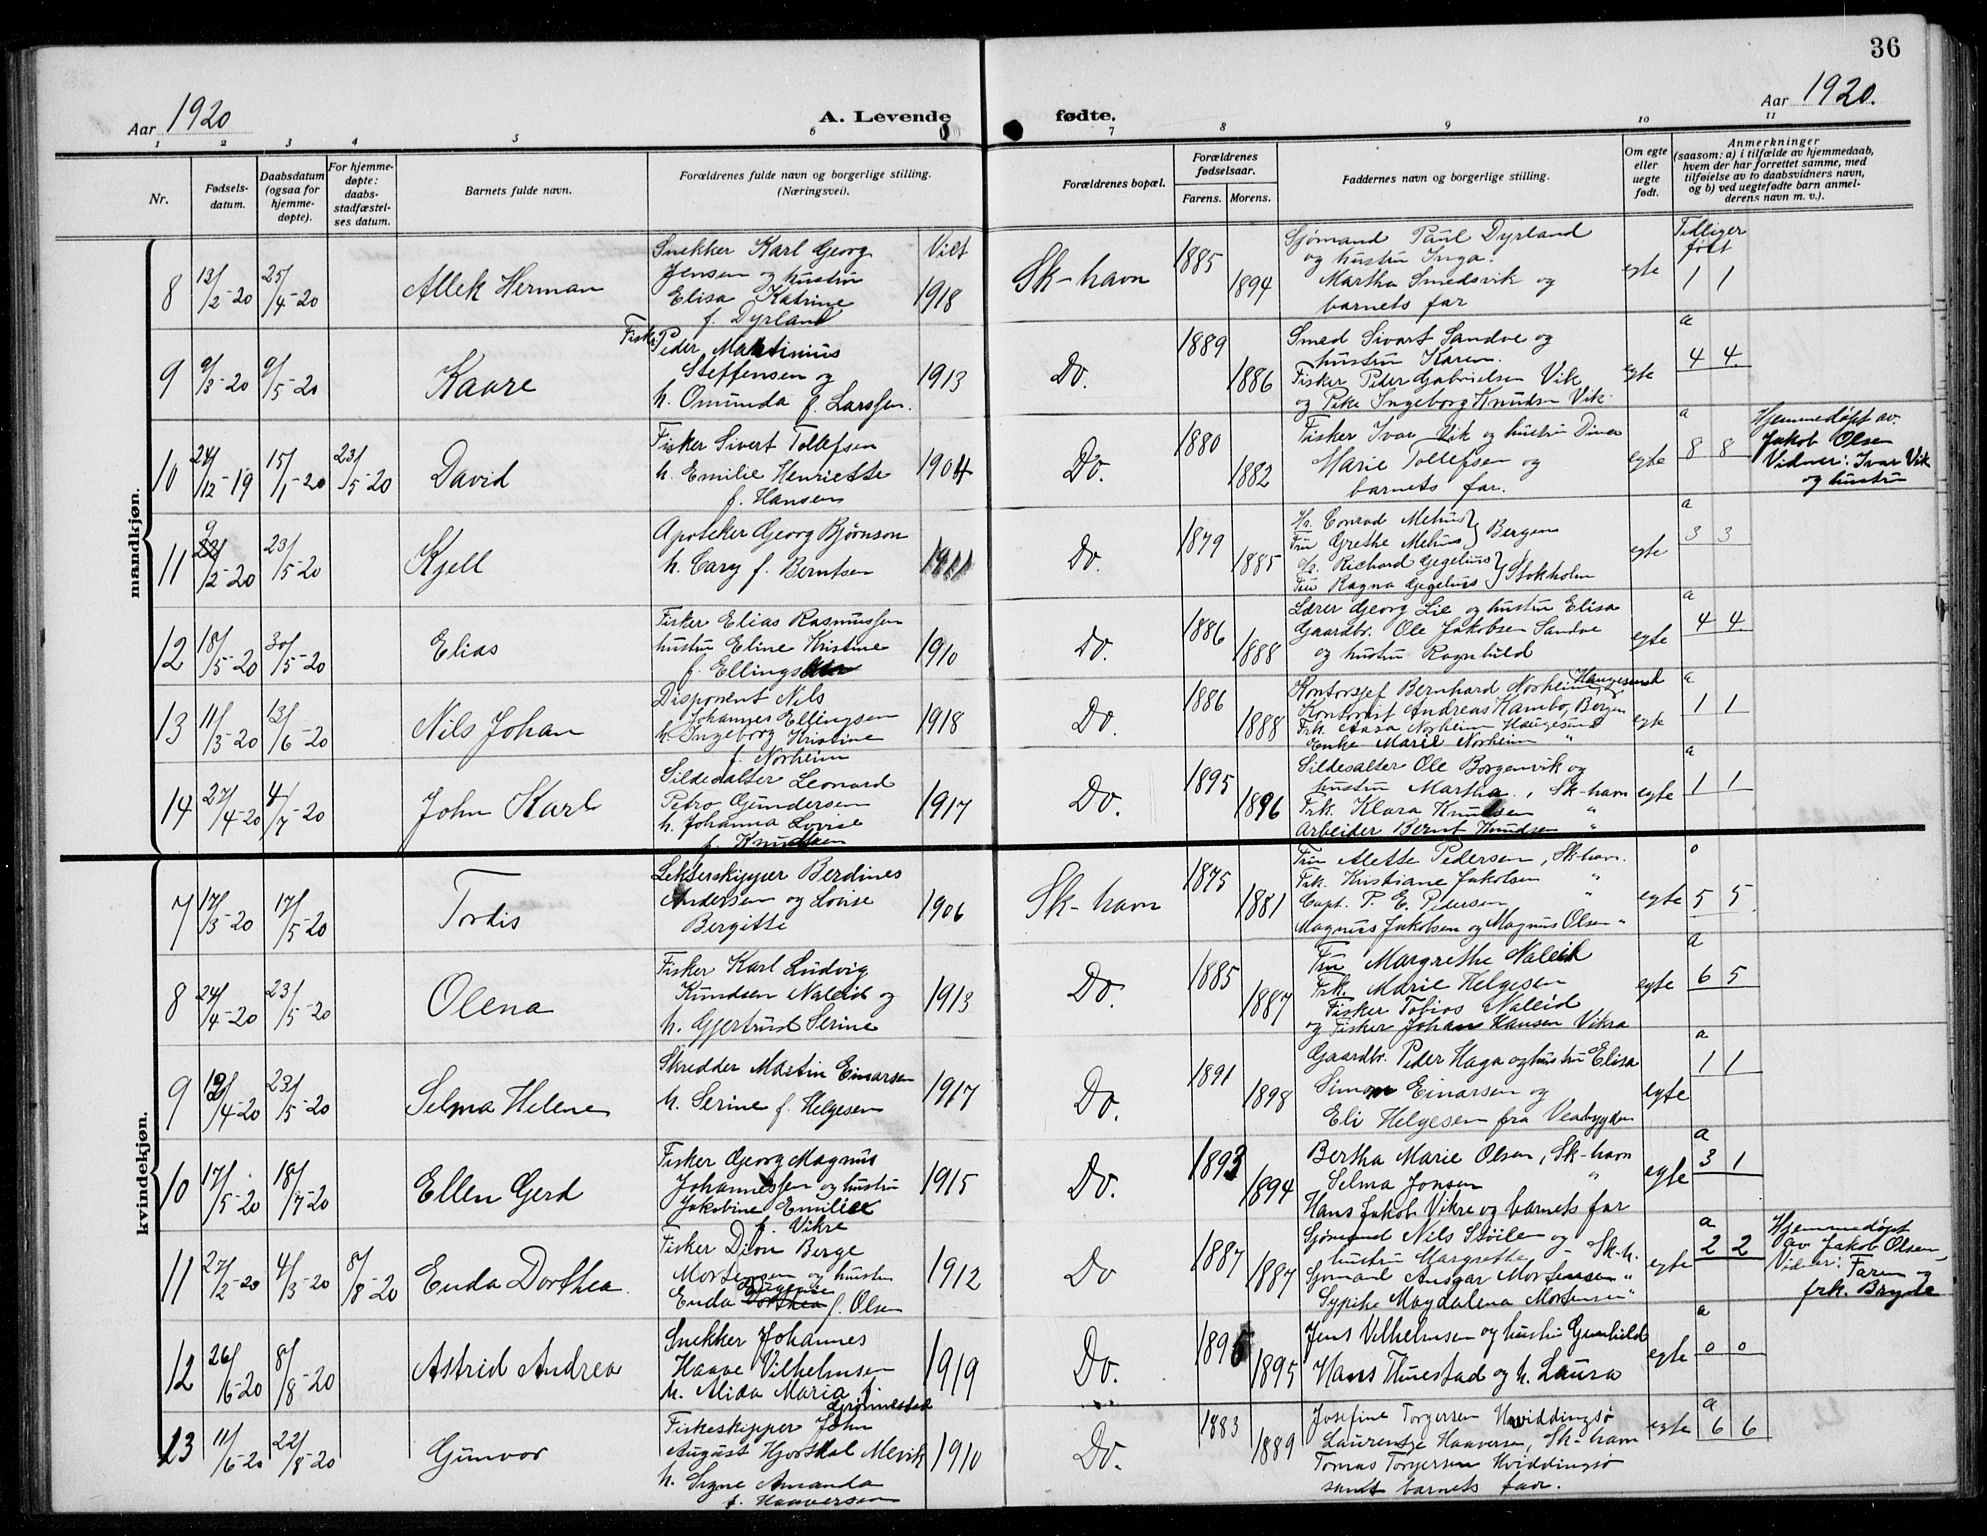 36
Aar 1920
A. Levende
fødte.
Aar 1920.
1 2 3 4 5 6 7 8 9 10 11
Nr.
Fødsels-
datum.
Daabsdatum
(ogsaa for
hjemme-
døpte).
For hjemme-
døpte:
daabs-
stadfæstel-
ses datum.
Barnets fulde navn.
Forældrenes fulde navn og borgerlige stilling.
(Næringsvei).
Forældrenes bopæl.
Forældrenes
fødselsaar.
Farens. Morens.
Faddernes navn og borgerlige stilling.
Om egte
eller
uegte
født.
Anmerkninger
(saasom: a) i tilfælde av hjemmedaab,
hvem der har forrettet samme, med
tilføielse av to daabsvidners navn,
og b) ved uegtefødte barn anmel-
derens navn m. v.).
mandkjøn.
8 13/2-20 25/4-20 Allek Herman
Snekker Karl Georg
Jensen og hustru
Elisa Katrine
f. Dyrland
Vilt
1918
Sk-havn 1885 1894
Sjømand Paul Dyrland
og hustru Inga.
Martha Smedsvik og
barnets far
egte
Tidliger
født
1 1
9 9/3-20 9/5-20 Kaare
Fisker Peder Martinius
Steffensen og
h. Omunda f. Larssen.
1913
Do. 1889 1886
Smed Sivart Sandve og
hustru Karen.
Fisker Peder Gabrielsen Vik
og Pike Ingeborg Knudsen Vik.
egte
a
4 4
10 24/12-19 15/1-20 23/5-20 David
Fisker Sivert Tollefsen
h. Emilie Henriette
f. Hansen
1904
Do. 1880 1882
Fisker Ivar Vik og hustru Dina
Marie Tollefsen og
barnets far.
egte
a
8 8
Hjemmedøpt av
Jakob Olsen
Vidner: Ivar Vik
og hustru
11 9/2-20 23/5-20 Kjell
Apoteker Georg Bjørnson
h. Cary f. Berntsen
1911
Do. 1879 1885
Hr. Conrad Mehus
Fru Grethe Mehus } Bergen
Hr. Richard Gegelius
Fru Ragna Gegelius } Stokholm
egte
a
3 3
12 18/5-20 30/5-20 Elias
Fisker Elias Rasmussen
hustru Eline Kristine
f. Ellingsen
1910
Do. 1886 1888
Lærer Georg Lie og hustru Elisa
Gaardbr. Ole Jakobsen Sandve
og hustru Ragnhild
egte
a
4 4
13 11/3-20 13/6-20 Nils Johan
Disponent Nils
Johannes Ellingsen
h. Ingeborg Kristine
f. Norheim
1918
Do. 1886 1888
Kontorsjef Bernhard Norheim, Haugesund
Kontorist Andreas Hambo, Bergen
Frk. Aasa Norheim Haugesund
Enke Marie Norheim "
egte
a
1 1
14 27/4-20 4/7-20 John Karl
Sildesalter Leonard
Petro Gundersen
h. Johanna Lovise
f. Knudsen
1917
Do. 1895 1896
Sildesalter Ole Borgenvik og
hustru Martha, Sk-havn
Frk. Klara Knudsen "
Arbeider Bernt Knudsen "
egte
a
1 1
kvindekjøn.
7 17/3-20 17/5-20 Tordis
Lekterskipper Berdines
Andersen og Lovise
Bergitte
1906
Sk-havn 1875 1881
Fru Alette Pedersen, Sk-havn.
Frk. Kristiane Jakobsen "
Capt. P. E. Pedersen "
Magnus Jakobsen og Magnus Olsen "
egte
a
5 5
8 24/4-20 23/5-20 Olena
Fisker Karl Ludvig
Knudsen Naleid og
h. Gjertrud Serine
1913
Do. 1885 1887
Fru Margrethe Naleid
Frk. Marie Helgesen
Fisker Tobias Naleid
og Fisker Johan Hansen Vikra
egte
a
6 5
9 /4-20 23/5-20 Selma Helene
Skredder Martin Einarsen
h. Serine f. Helgesen
1917
Do. 1891 1898
Gaardbr. Peder Haga og hustru Elisa
Simon Einarsen og
Eli Helgesen fra Veabygden
egte
a
1 1
10 17/5-20 18/7-20 Ellen Gerd
Fisker Georg Magnus
Johannessen og hustru
Jakobine Emilie
f. Vikre
1915
Do. 1893 1894
Bertha Marie Olsen, Sk-havn
Selma Jonsen "
Hans Jakob Vikre og barnets far
egte
a
3 1
11 27/2-20 4/3-20 8/8-20 Enda Dorthea
Fisker Djon Berge
Mortensen og hustru
Enda Dorthea f. Olsen
1912
Do 1887 1887
Sjømand Nils Støile og
hustru Margrethe - Sk-h.
Sjømand Ansgar Mortensen "
Sypike Magdalena Mortensen "
egte
a
2 2
Hjemmedøpt
av Jakob Olsen
Vidner: Faren og
frk. Bryde
12 26/6-20 8/8-20 Astrid Andrea
Snekker Johannes
Haave Vilhelmsen
h. Alida Maria f.
Grinnestad
1919
Do. 1895 1895
Jens Vilhelmsen og hustru Gunhild
Hans Tuestad og h. Laura
egte
a
0 0
13 11/6-20 22/8-20 Gunvor
Fiskeskipper John
August Hjorsdal Mevik
h. Signe Amanda
f. Haaversen
1910
Do. 1883 1889
Josefine Torgersen Hviddingsø
Laurentse Haaversen, Sk-havn
Tomas Torgersen Hviddingsø
samt barnets far.
egte
a
6 6